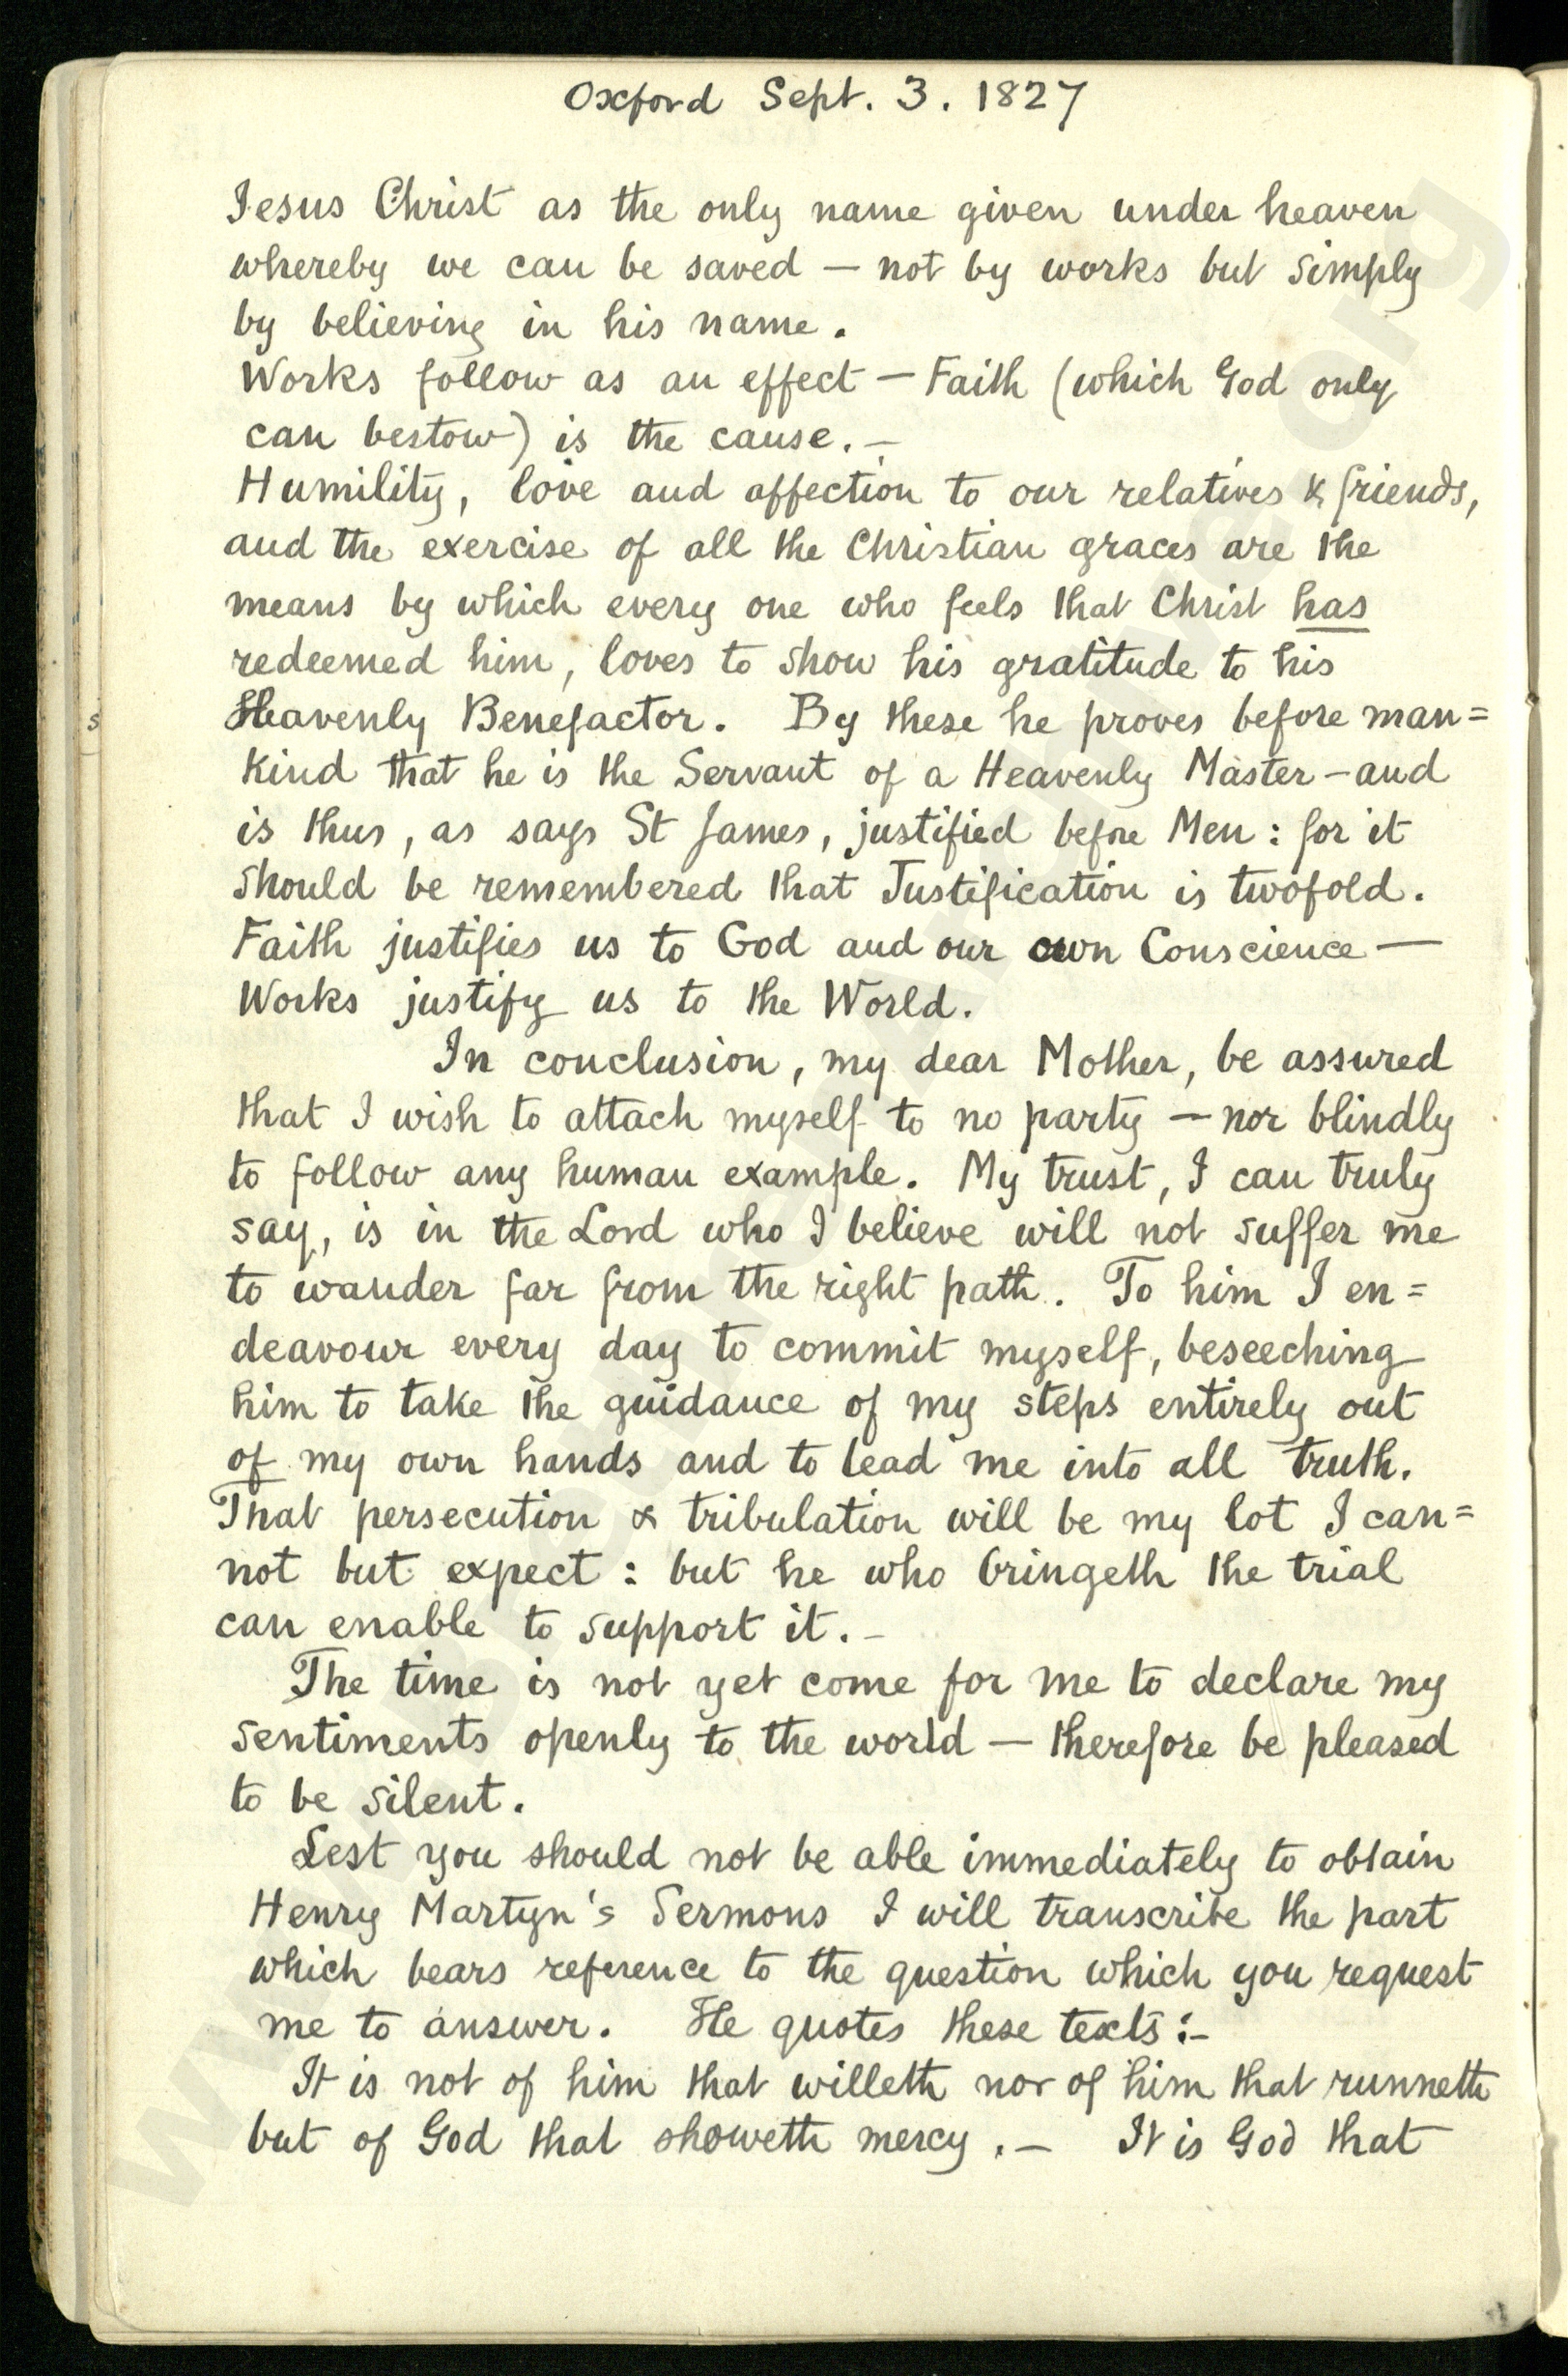 Oxford Sept. 3. 1827
Jesus Christ as the only name given under heaven
whereby we can be saved — not by works but simply
by believing in his name.
Works follow as an effect — Faith (which God only
can bestow) is the cause. —
Humility, love and affection to our relatives & friends,
and the exercise of all the Christian graces are the
means by which every one who feels that Christ has
redeemed him, loves to show his gratitude to his
Heavenly Benefactor. By these he proves before man=
kind that he is the Servant of a Heavenly Master — and
is thus, as says St James, justified before Men : for it
should be remembered that Justification is twofold.
Faith justifies us to God and our own Conscience —
Works justify us to the World.
In conclusion, my dear Mother, be assured
that I wish to attach myself to no party — nor blindly
to follow any human example. My trust, I can truly
say, is in the Lord who I believe will not suffer me
to wander far from the right path. To him I en=
deavour every day to commit myself, beseeching
him to take the guidance of my steps entirely out
of my own hands and to lead me into all truth.
That persecution & tribulation will be my lot I can=
not but expect : but he who bringeth the trial
can enable to support it. —
The time is not yet come for me to declare my
sentiments openly to the world — therefore be pleased
to be silent.
Lest you should not be able immediately to obtain
Henry Martyn's Sermons I will transcribe the part
which bears reference to the question which you request
me to answer. He quotes these texts :—
It is not of him that willeth nor of him that runneth
but of God that showeth mercy. — It is God that
s